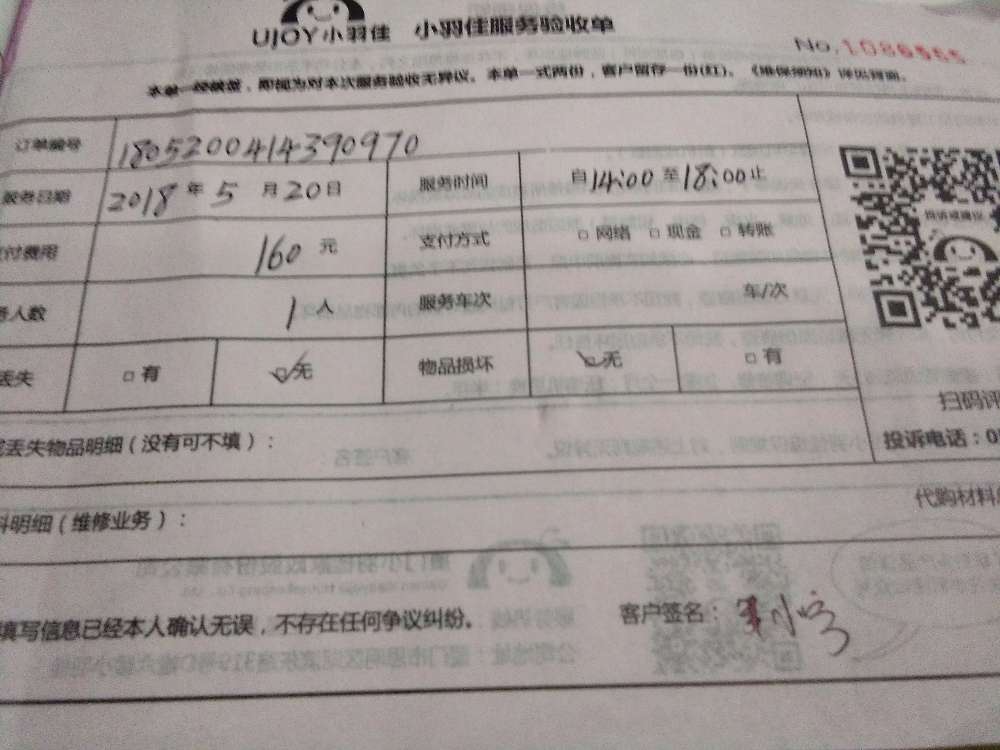 UJOY小羽佳 小羽佳服务验收单
No.1086555
本单一经被签，即视为对本次服务验收无异议。本单一式两份，客户留存一份(红)。《维保须知》详见背面。
订单编号 1805200414390970
服务日期 2018年5月20日 服务时间 自14:00至18:00止
付费用 160元 支付方式 □网络 □现金 □转账
人数 1人 服务车次 车/次
丢失 □有 ☑无 物品损坏 ☑无 □有
扫码评
丢失物品明细（没有可不填）：
投诉电话：0
代购材料
料明细（维修业务）：
填写信息已经本人确认无误，不存在任何争议纠纷。 客户签名：